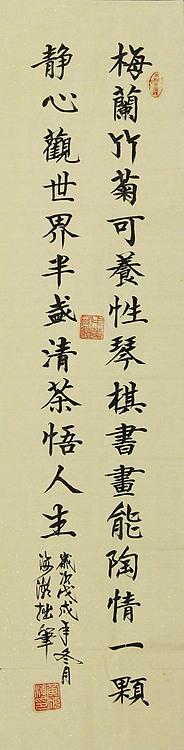 梅蘭竹菊可養性琴棋書畫能陶情一顆
静心觀世界半盏清茶悟人生
歲次戊戌年冬月
拙筆